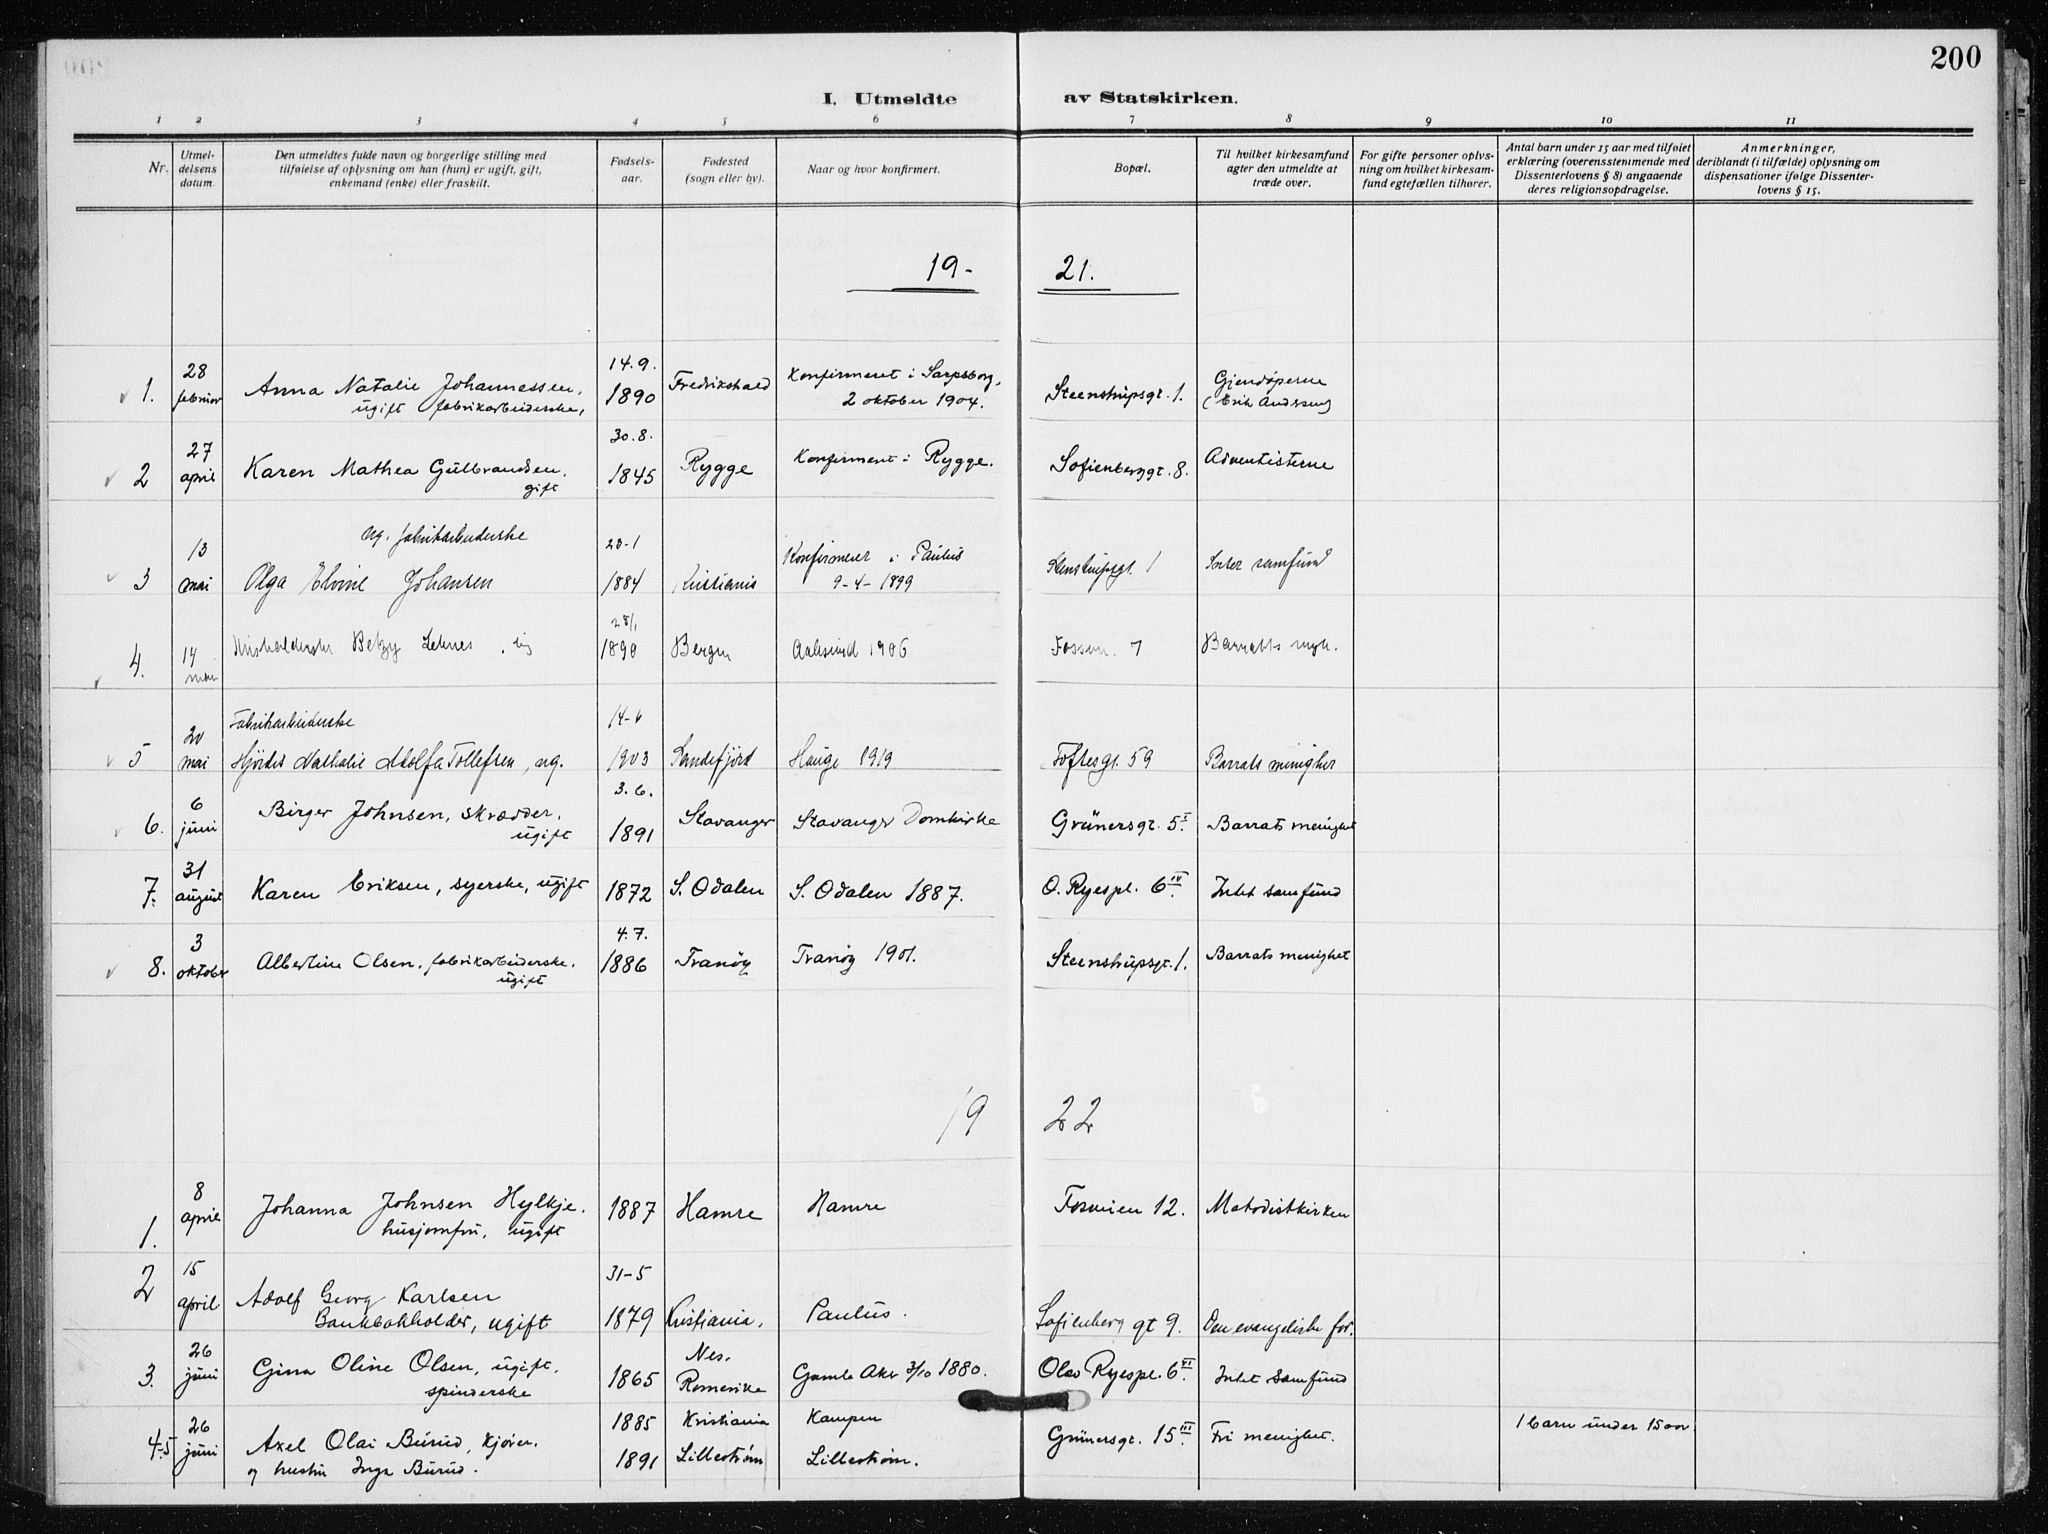 200
I. Utmeldte av Statskirken.
1 2 3 4 5 6 7 8 9 10 11
Nr.
Utmel-
delsens
datum.
Den utmeldtes fulde navn og borgerlige stilling med
tilføielse af oplysning om han (hun) er ugift, gift,
enkemand (enke) eller fraskilt.
Fødsels-
aar.
Fødested
(sogn eller by).
Naar og hvor konfirmert.
Bopæl.
Til hvilket kirkesamfund
agter den utmeldte at
træde over.
For gifte personer oplys-
ning om hvilket kirkesam-
fund egtefællen tilhører.
Antal barn under 15 aar med tilføiet
erklæring (overensstemmende med
Dissenterlovens § 8) angaaende
deres religionsopdragelse.
Anmerkninger,
deriblandt (i tilfælde) oplysning om
dispensationer ifølge Dissenter-
lovens § 15.
19- 21.
1. 28 februar Anna Natalie Johannessen, ugift fabrikarbeiderske, 14.9. 1890 Fredrikshald Konfirmeret i Sarpsborg, 2 oktober 1904. Steenstrupsgt. 1. Gjendøperne (Erik Andersen)
2 27 april Karen Mathea Gulbrandsen, gift 30.8. 1845 Rygge Konfirmeret i Rygge. Sofienberggt. 8. Adventisterne
3 13 mai ug. fabrikarbeiderske Olga Elvine Johansen 1884 Kristiania Konfirmeret i Paulus 9-4-1899 Stenstrupsgt. 1 Intet samfund
4. 14 mai Betzy Lehnes, ug 28/1 1890 Bergen Aalesund 1906 Fossvn. 7 Barratts mgh.
5 20 mai Fabrikarbeiderske Hjördis Nathalie Adolfa Tollefsen, ug. 14-6 1903 Sandefjord Hauge 1919 Toftesgt. 59 Barrats menighet
6. 6 juni Birger Johnsen, skrædder, ugift 3.6. 1891 Stavanger Stavanger Domkirke Grünersgt. 5 I. Barrats menighet
7. 31 august Karen Eriksen, syerske, ugift 1872 S. Odalen S. Odalen 1887. O. Ryespl. 6 IV. Intet samfund
8. 3 oktober Albertine Olsen, fabrikarbeiderske, ugift 4.7. 1886 Tranöy Tranöy 1901. Steenstrupsgt. 1. Barrats menighet
19 22
1. 8 april Johanna Johnsen Hylkje, husjomfru, ugift 1887 Hamre Hamre Fosveien 12. Metodistkirken
2 15 april Adolf Georg Karlsen Bankbokholder, ugift 31-5 1879 Kristiania. Paulus. Sofienberg gt 9. Den evangeliske for.
3. 26 juni Gina Oline Olsen, ugift, spinderske 1865 Nes. Romerike Gamle Aker 3/10 1880. Olav Ryespl. 6 VI. Intet samfund
4-5 26 juni Axel Olai Burud, kjører. og hustru Inga Burud. 1885 1891 Kristiania Lilleström Kampen Lilleström. Grünersgt. 15 III. Fri menighet. 1 barn under 15 aar